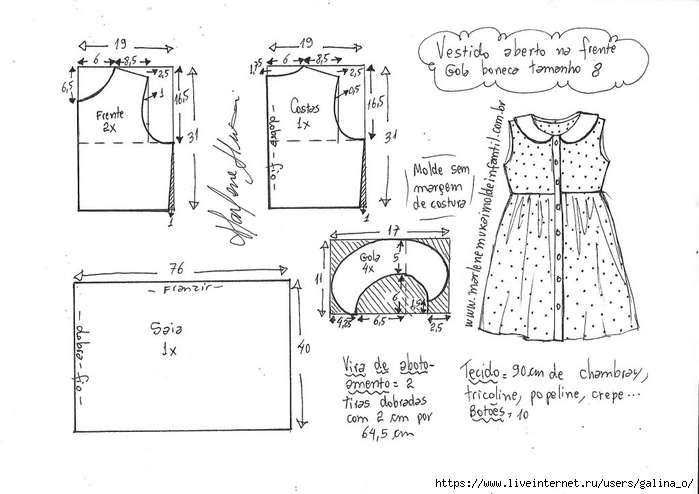 Vestido aberto na frente
e Gola boneca tamanho 8
19
6
8,5
2,5
6,5
1
16,5
31
Frente
2x
1
19
6
8,5
1,5
2,5
0,5
16,5
31
Costas
1x
- dobra - fio -
1
Marlene Mukai
Molde sem
margem
de costura
www.marlenemukaimoldeinfantil.com.br
17
11
Gola
4x
5
6
1,5
4,25
6,5
2,5
76
- Franzir -
Saia
1x
- dobra - fio -
40
Vira de aboto-
amento = 2
tiras dobradas
com 2 cm por
64,5 cm
Tecido = 90 cm de chambray,
tricoline, popeline, crepe...
Botões = 10
https://www.liveinternet.ru/users/galina_o/